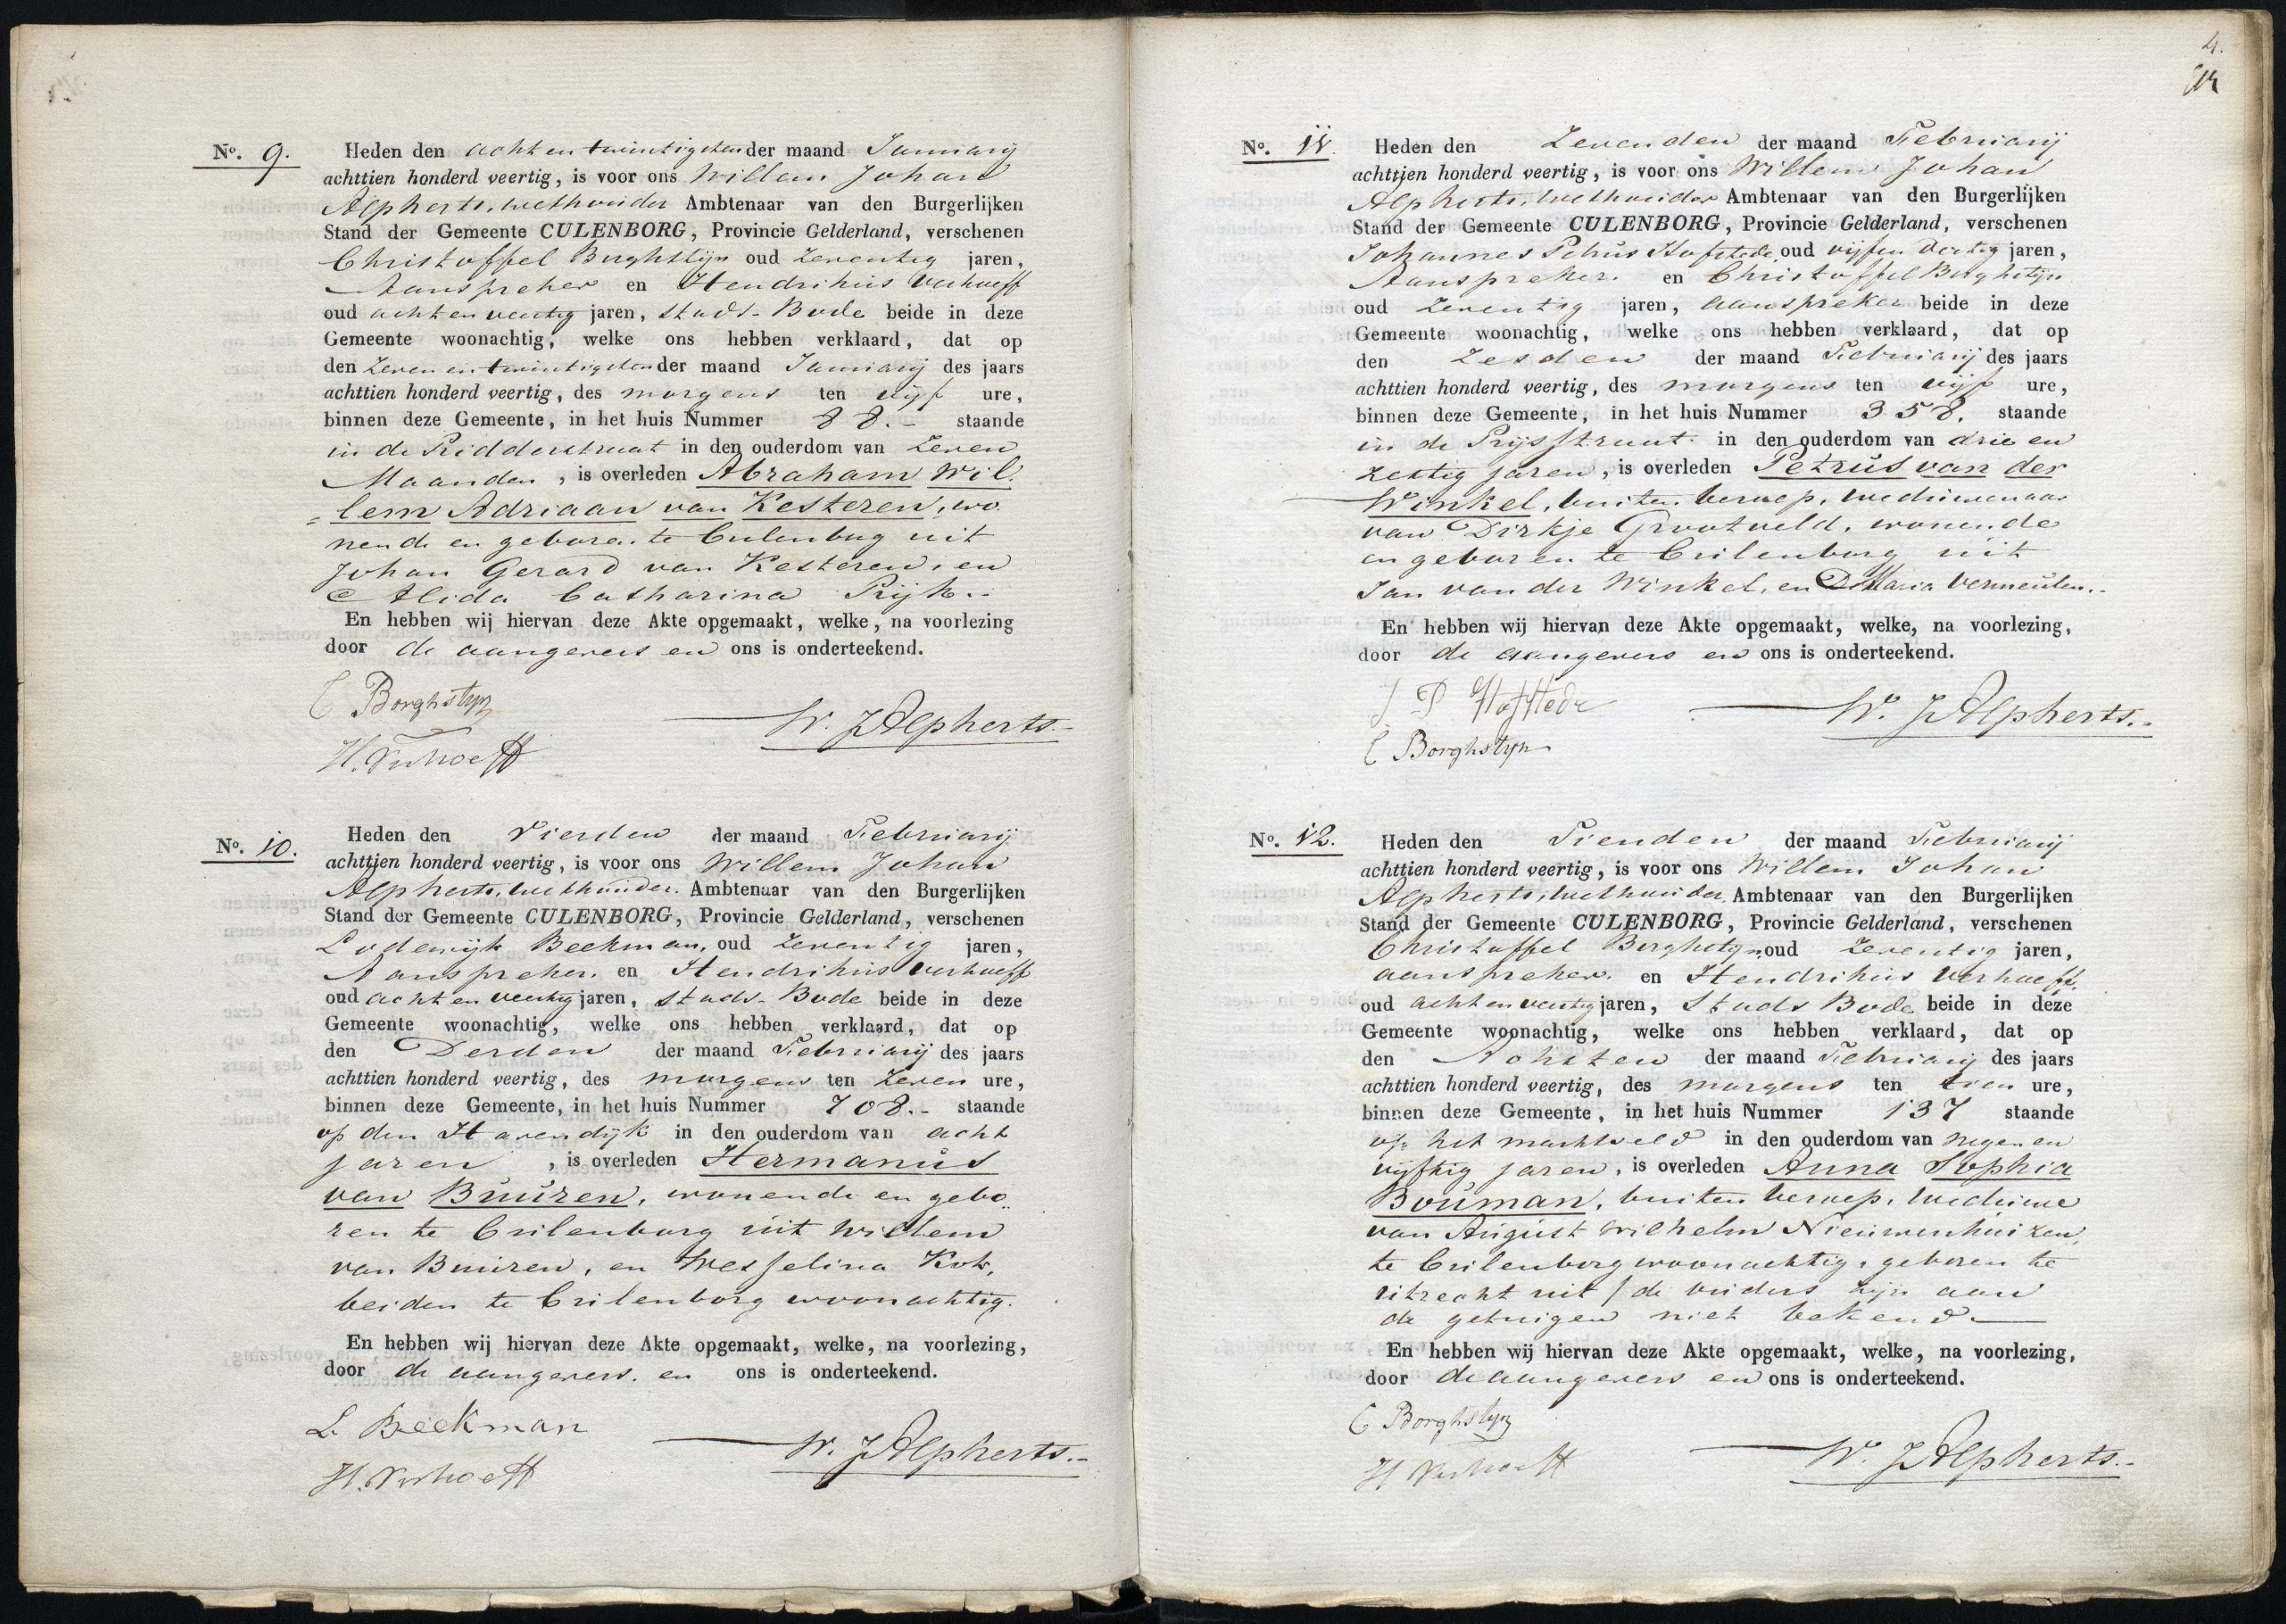 No. 9. Heden den acht en twintigsten der maand Januarij
achttien honderd veertig, is voor ons Willem Johan
Alpherts, wethouder Ambtenaar van den Burgerlijken
Stand der Gemeente CULENBORG, Provincie Gelderland, verschenen
Christoffel Borghstijn oud zeventig jaren,
Aanspreker en Hendrikus Verhoeff
oud acht en veertig jaren, Stads-Bode beide in deze
Gemeente woonachtig, welke ons hebben verklaard, dat op
den zeven en twintigsten der maand Januarij des jaars
achttien honderd veertig, des morgens ten vijf ure,
binnen deze Gemeente, in het huis Nummer 88.- staande
in de Ridderstraat in den ouderdom van zeven
Maanden, is overleden Abraham Wil-
=lem Adriaan van Kesteren, wo
nende en geboren te Culenborg uit
Johan Gerard van Kesteren, en
Alida Catharina Prijk.
En hebben wij hiervan deze Akte opgemaakt, welke, na voorlezing
door de aangevers en ons is onderteekend.
C Borghstyn
W. J Alpherts.-
H. Verhoeff
No. 10. Heden den Vierden der maand Februarij
achttien honderd veertig, is voor ons Willem Johan
Alpherts, wethouder. Ambtenaar van den Burgerlijken
Stand der Gemeente CULENBORG, Provincie Gelderland, verschenen
Lodewijk Beekman, oud zeventig jaren,
Aanspreker. en Hendrikus Verhoeff
oud acht en veertig jaren, Stads-Bode beide in deze
Gemeente woonachtig, welke ons hebben verklaard, dat op
den Derden der maand Februarij des jaars
achttien honderd veertig, des morgens ten zeven ure,
binnen deze Gemeente, in het huis Nummer 708.- staande
op den Havendijk in den ouderdom van acht
jaren, is overleden Hermanus
van Buuren, wonende en gebo
ren te Culenborg uit Willem
van Buuren, en Wesselina Kok,
beiden te Culenborg woonachtig.
En hebben wij hiervan deze Akte opgemaakt, welke, na voorlezing,
door de aangevers. en ons is onderteekend.
L. Beekman
W. J Alpherts.-
H. Verhoeff
4.
No. 11. Heden den Zevenden der maand Februarij
achttien honderd veertig, is voor ons Willem Johan
Alpherts, wethouder Ambtenaar van den Burgerlijken
Stand der Gemeente CULENBORG, Provincie Gelderland, verschenen
Johannes Petrus Hofstede, oud vijf en dertig jaren,
Aanspreker. en Christoffel Borghstijn
oud zeventig jaren, aanspreker beide in deze
Gemeente woonachtig, welke ons hebben verklaard, dat op
den Zesden der maand Februarij des jaars
achttien honderd veertig, des morgens ten vijf ure,
binnen deze Gemeente, in het huis Nummer 358. staande
in de Prijsstraat in den ouderdom van drie en
zestig jaren, is overleden Petrus van der
Winkel, buiten beroep, weduwenaar
van Dirkje Grootveld, wonende
en geboren te Culenborg uit
Jan van der Winkel, en Maria Vermeulen.
En hebben wij hiervan deze Akte opgemaakt, welke, na voorlezing,
door de aangevers en ons is onderteekend.
J P Hofstede
W. J Alpherts.-
C Borghstyn
No. 12. Heden den Tienden der maand Februarij
achttien honderd veertig, is voor ons Willem Johan
Alpherts, wethouder, Ambtenaar van den Burgerlijken
Stand der Gemeente CULENBORG, Provincie Gelderland, verschenen
Christoffel Borghstijn, oud zeventig jaren,
aanspreker. en Hendrikus Verhoeff.
oud acht en veertig jaren, Stads Bode beide in deze
Gemeente woonachtig, welke ons hebben verklaard, dat op
den Achtsten der maand Februarij des jaars
achttien honderd veertig, des morgens ten tien ure,
binnen deze Gemeente, in het huis Nummer 137 staande
op het marktveld in den ouderdom van negen en
vijftig jaren, is overleden Anna Sophia
Bouman, buiten beroep, weduwe
van August Wilhelm Nieuwenhuizen,
te Culenborg woonachtig, geboren te
Utrecht uit / de ouders zijn aan
de getuigen niet bekend
En hebben wij hiervan deze Akte opgemaakt, welke, na voorlezing,
door de aangevers en ons is onderteekend.
C Borghstyn
W. J Alpherts.-
H Verhoeff